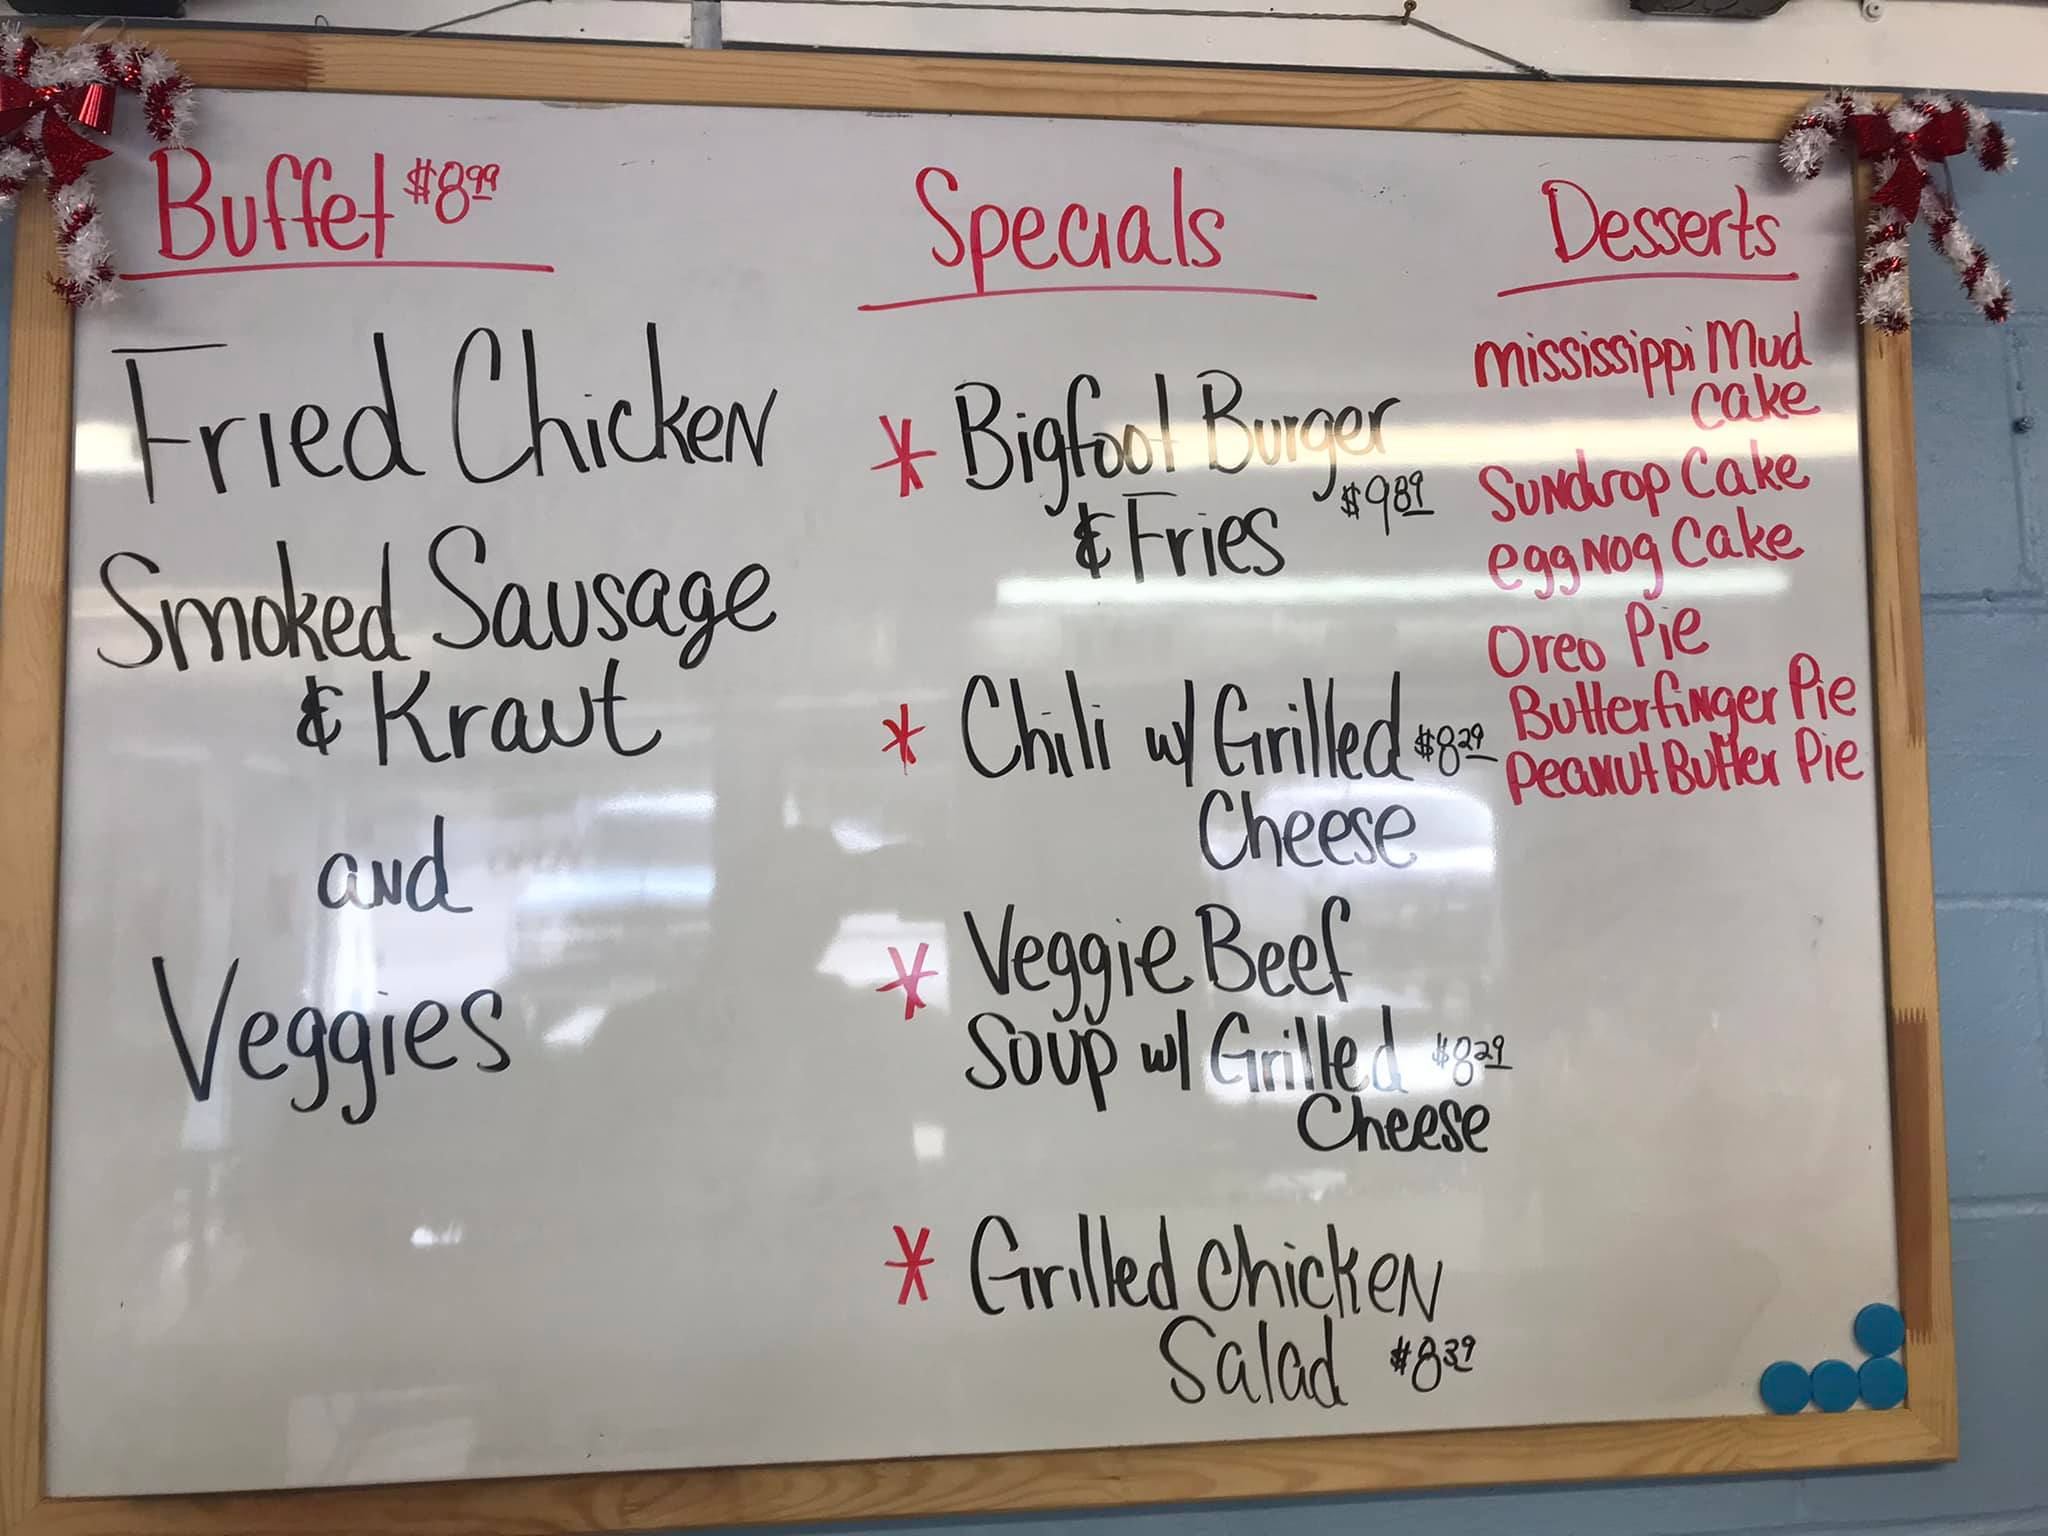 Buffet $8.99
Fried Chicken
Smoked Sausage
& Kraut
and
Veggies
Specials
* Bigfoot Burger
& Fries $9.89
* Chili w/ Grilled $8.29
Cheese
* Veggie Beef
Soup w/ Grilled $8.29
Cheese
* Grilled Chicken
Salad $8.39
Desserts
Mississippi Mud
Cake
Sundrop Cake
egg Nog Cake
Oreo Pie
Butterfinger Pie
Peanut Butter Pie